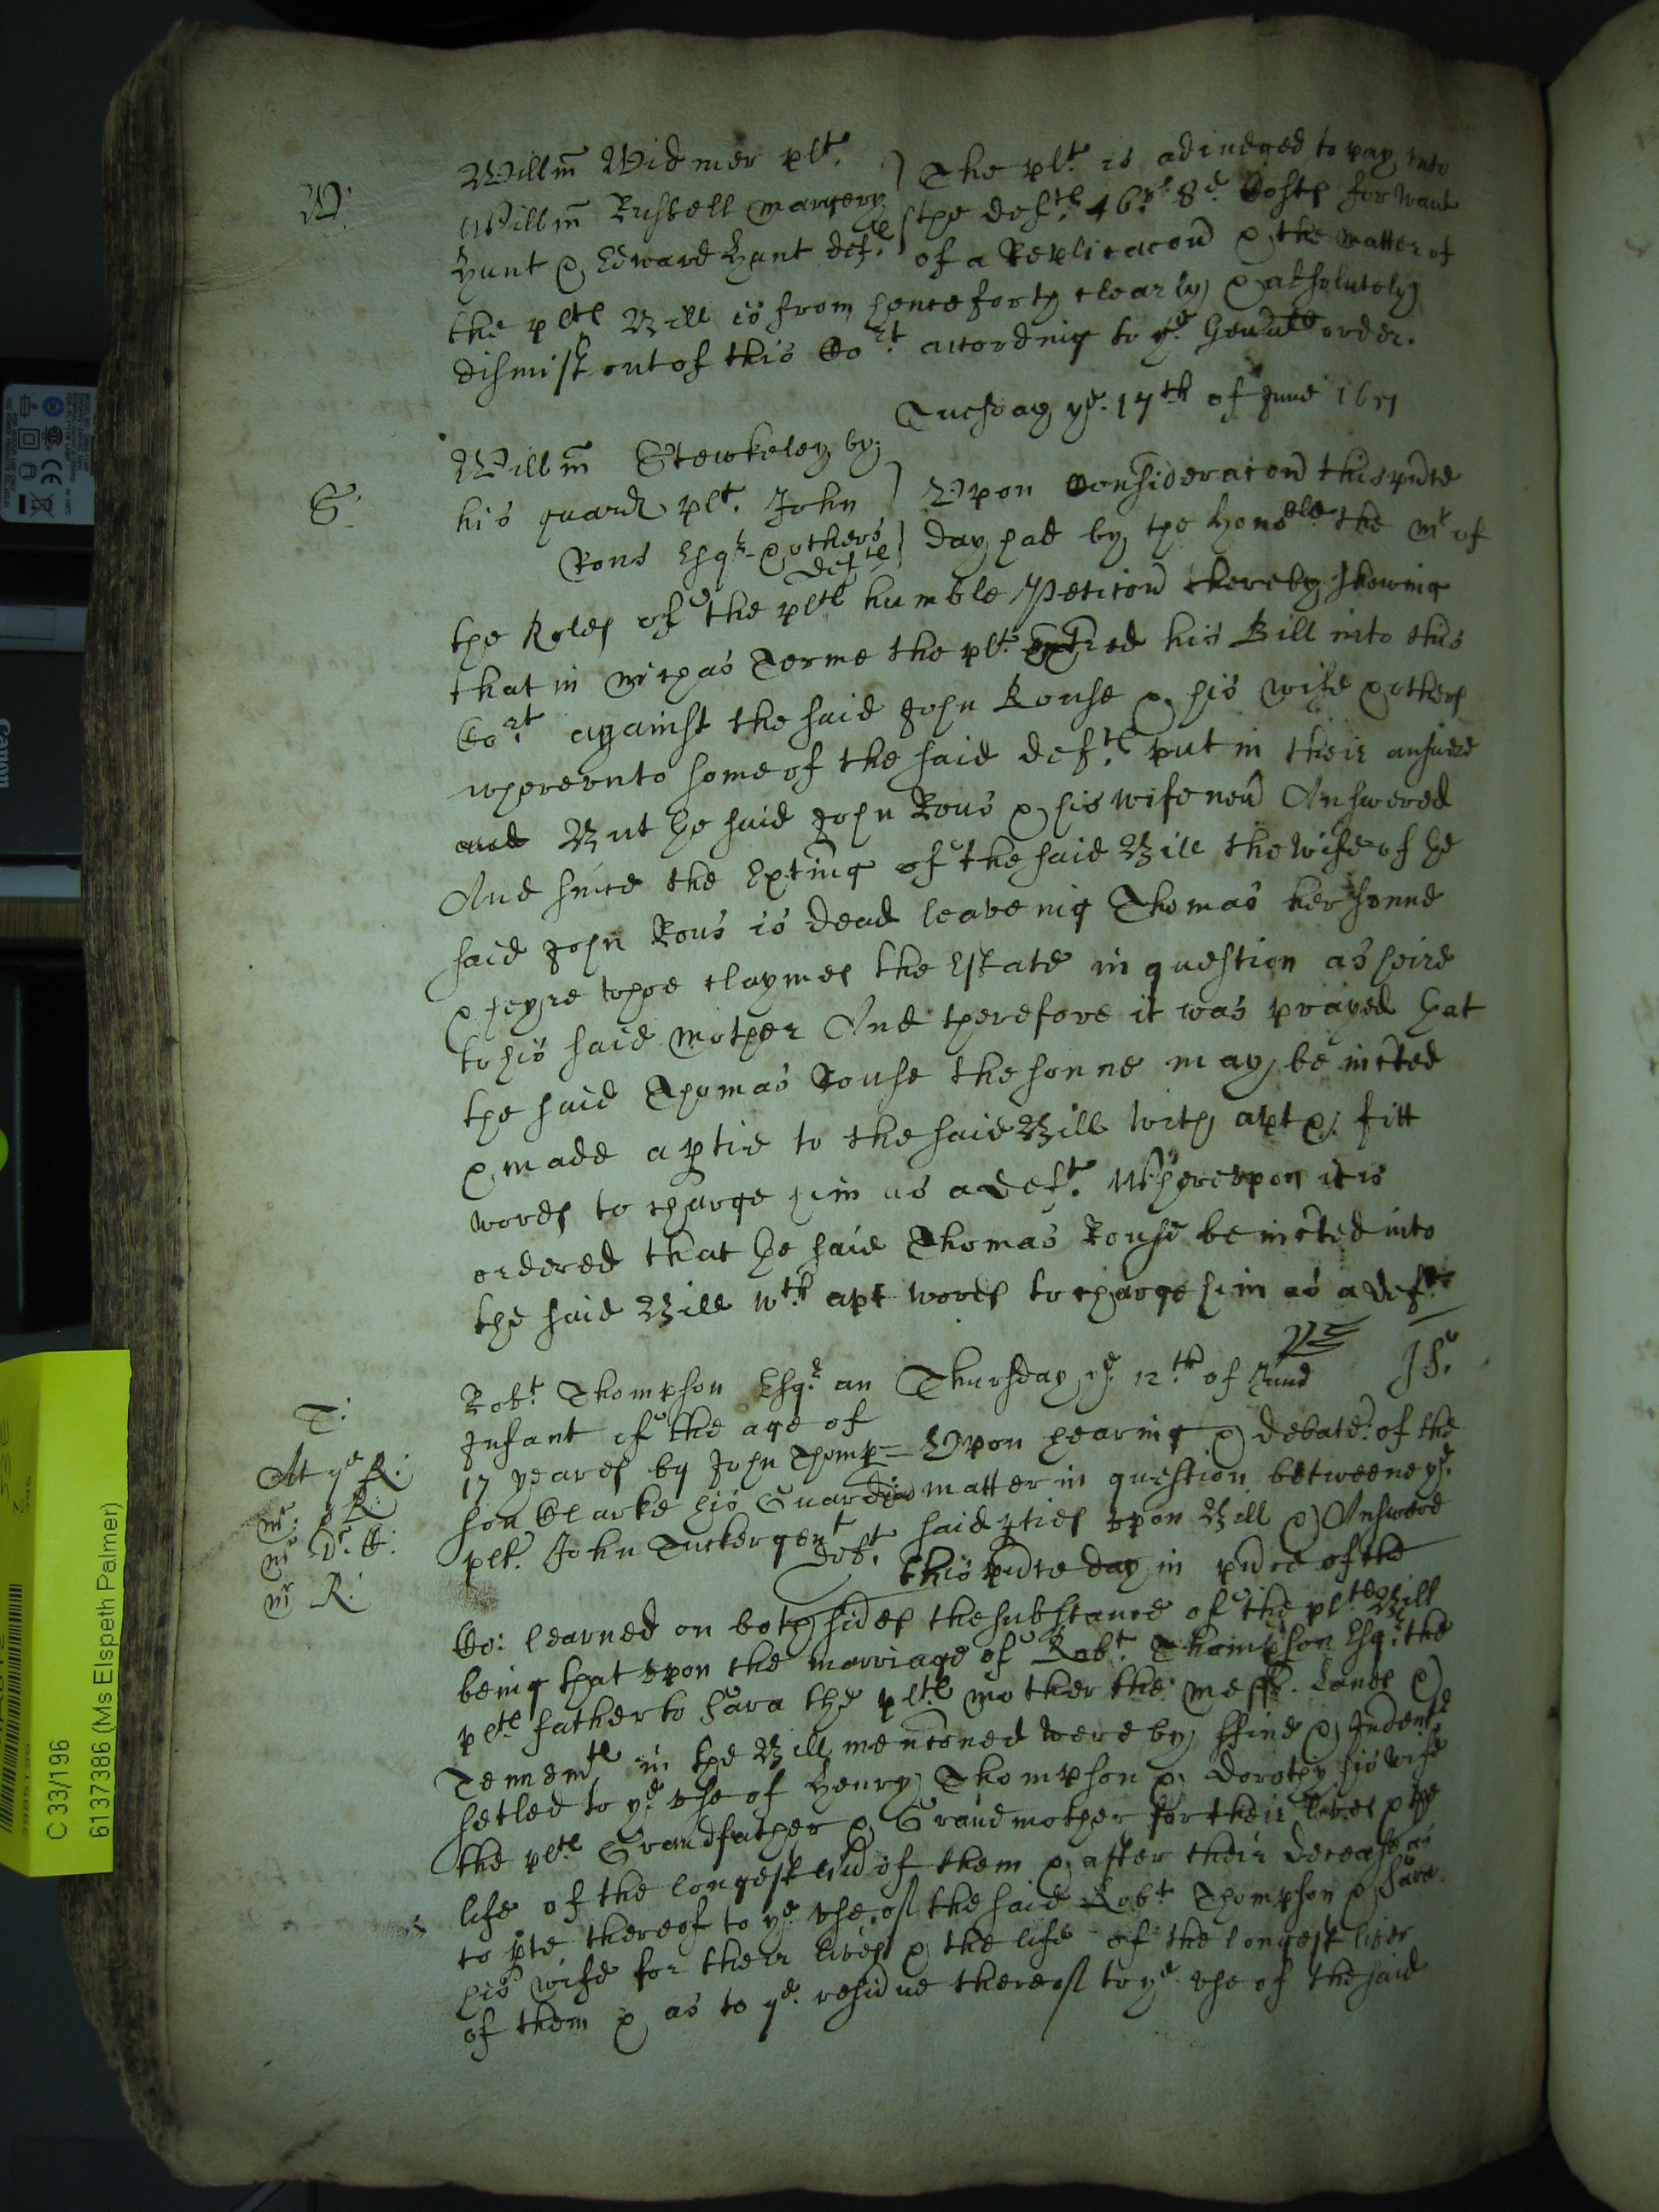 W.
Willm̄ Widmer plt. } The plt. is adiudged to pay vnto
Willm̄ Russell Margery } the deftℓ 46s. 8d. Costs for want
Hunt & Edward Hunt deftℓ of a Replicacon & the matter of
the pltℓ Bill is from henceforth clearly & absolutely
dismist out of this Cort according to ye. Genall order.
Tuesday ye. 17th of June 1651
S.
Willm̄ Stewkeley by
his guard plt. John } Vpon Consideracon this pnte
Rous Esqr & others } day had by the Honoble the Mr of
deftℓ
the Roles of the pltℓ humble Peticon thereby showing
that in Michas Terme the plt. his Bill into this
Cort against the said John Rouse & his wife & others
wherevnto some of the said deftℓ put in their answere
But the said John Rous & his wife nev Answered
And since the Exhiting of the said Bill the wife of the
said John Rous is dead leaveing Thomas her sonne
& heyre whoe claymes the Estate in question as heire
to his said mother And therefore it was prayed that
the said Thomas Rouse the sonne may be incted
& made a ptie to the said Bill with apt & fitt
words to charge him as a deft. Wherevpon it is
ordered that the said Thomas Rouse be incted into
the said Bill wth apt words to charge him as a deft.
T.
Robt Thompson Esqr an Thursday ye. 12th of June JS.
Infant of the age of
17 yeares by John Thomp= Vpon hearing & debate of the
son Clarke his Guardia matter in question betweene ye.
plt. John Tucker gent said pties vpon Bill & Answere
deft. this pnte day in pnce of the
At ye R:
Mr: R:
Mr
Mr R:
Co: learned on both sides the substance of the pltℓ Bill
being that vpon the marriage of Robt. Thompson Esqr the
pltℓ father to Sara the pltℓ mother the messℓ. Lands &
Tennemtℓ in the Bill menconed were by ffine & Indentℓ
setled to ye. vse of Henry Thompson & Dorothy his wife
the pltℓ Grandfather & Grandmother for their lives & the
life of the longest livd of them & after their decease as
to pte thereof to ye. vse of the said Robt Thompson & Sara
his wife for their lives & the life of the longest liver
of them & as to ye. residue thereof to ye. vse of the said
C 33/196
6137386 (Ms Elspeth Palmer)
Canon